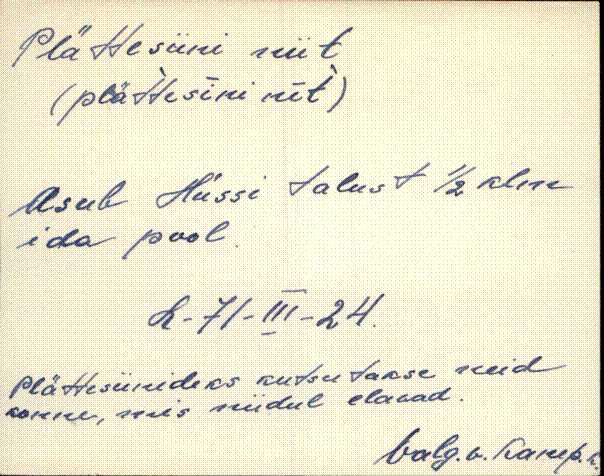 Plättesiini niit
(plät̀tesīni nīt̀)
Asub Hüssi talust 1/2 klm
ida pool.
L-71-III-24.
Plättesiinideks kutsutakse neid
konne, mis niidul elavad.
Valg. v. Karep.